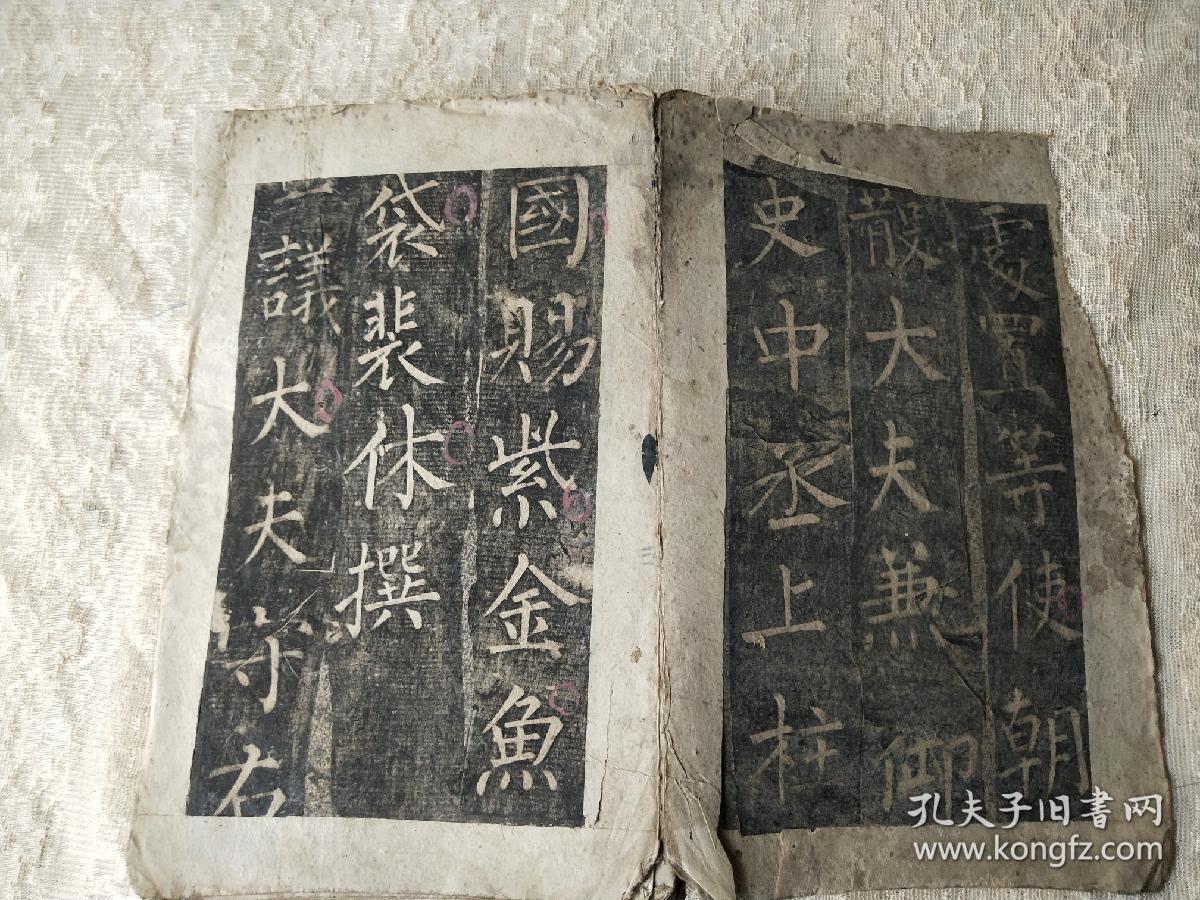 處置等使朝
散大夫兼御
史中丞上柱
國賜紫金魚
袋裴休撰
議大夫守右
三
孔夫子旧書网
www.kongfz.com